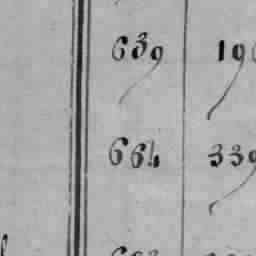 639 19
664 339